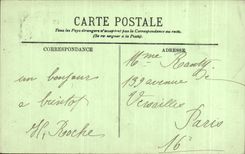 CARTE POSTALE
Tous les Pays étrangers n'acceptent pas la Correspondance au recto.
(Se renseigner à la Poste).
CORRESPONDANCE
ADRESSE
un bonjour
à bientot
H. Roche
Mme
139 avenue de
Versailles
Paris
16e